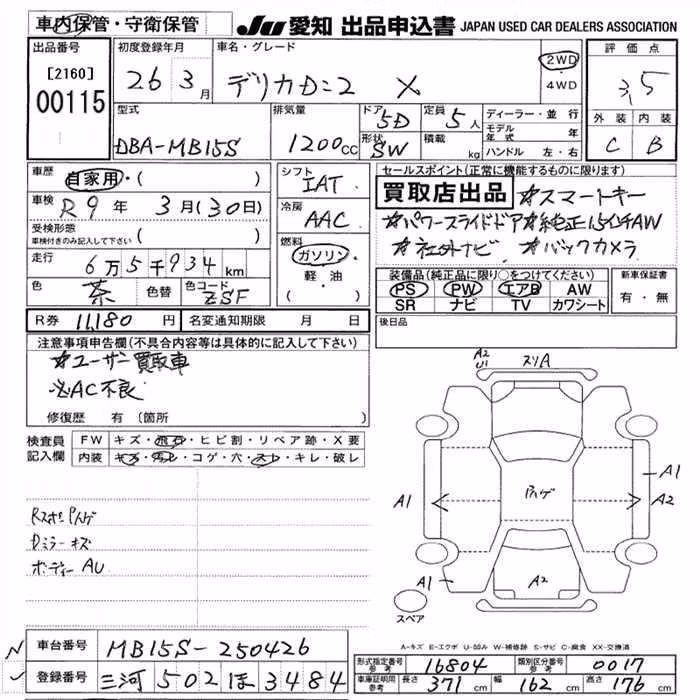 車内保管・守衛保管
JU 愛知 出品申込書 JAPAN USED CAR DEALERS ASSOCIATION
出品番号
[2160]
00115
初度登録年月
26 3月
車名・グレード
デリカD:2 X
2WD
・
4WD
評価点
3.5
外装 内装
C B
型式
DBA-MB15S
排気量
1200cc
ドア 5D
形状 SW
定員 5人
積載 kg
ディーラー・並行
モデル年式 年
ハンドル 左・右
車歴 自家用・( )
車検 R9年 3月(30日)
受検形態
車検付きのみ記入して下さい ( )
走行 6万5千934km
色 茶 色替 色コード ZSF
シフト
IAT
冷房
AAC
燃料
ガソリン
・
軽・油
( )
セールスポイント(正常に機能するものに限ります)
買取店出品 ☆スマートキー
☆パワースライドドア ☆純正15インチAW
☆社外ナビ ☆バックカメラ
装備品(純正品に限り○をつけてください)
PS PW エアB AW
SR ナビ TV カワシート
新車保証書
有・無
R券 11,180円 名変通知期限 月 日
後日品
注意事項申告欄(不具合内容等は具体的に記入して下さい)
☆ユーザー買取車
※AC不良
修復歴 有(箇所 )
検査員記入欄
FW キズ・飛石・ヒビ割・リペア跡・X要
内装 キズ・汚レ・コゲ・穴・スレ・キレ・破レ
RスポPハゲ
Dミラーキズ
ボディーAU
A2
U1
スリA
A1
Pハゲ
A1
A2
A1
A2
スペア
A-キズ E-エクボ U-凹み W-補修跡 S-サビ C-腐食 XX-交換済
車台番号 MB15S-250426
登録番号 三河 502 ほ 3484
形式指定番号 参考 16804 類別区分番号 参考 0017
車庫証明用 参考 長さ 371cm 幅 162cm 高さ 176cm